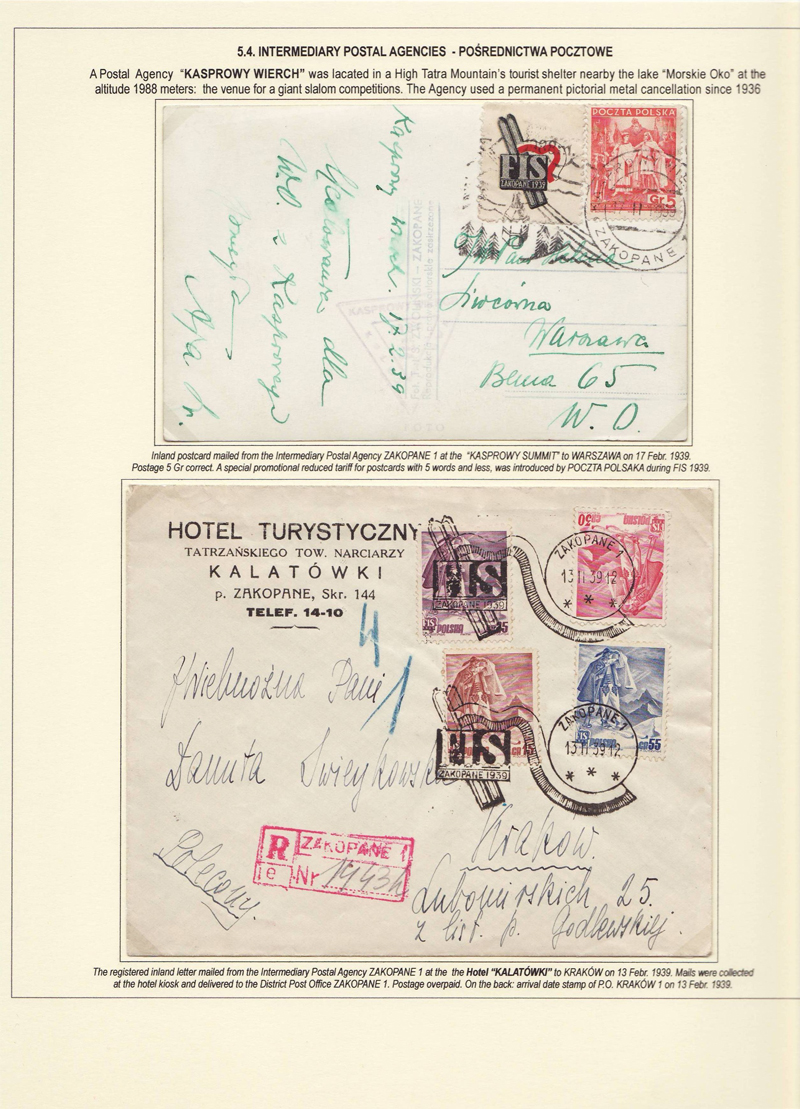 5.4. INTERMEDIARY POSTAL AGENCIES - POŚREDNICTWA POCZTOWE
A Postal Agency "KASPROWY WIERCH" was lacated in a High Tatra Mountain's tourist shelter nearby the lake "Morskie Oko" at the
altitude 1988 meters: the venue for a giant slalom competitions. The Agency used a permanent pictorial metal cancellation since 1936
Kasprowy Wierch. 17.2.39
dla
W.D. z Kasprowego
FIS
ZAKOPANE 1939
POCZTA POLSKA
Gr. 5
ZAKOPANE
KASPROWY
ZAKOPANE
Warszawa
Bema 65
W. D.
Inland postcard mailed from the Intermediary Postal Agency ZAKOPANE 1 at the "KASPROWY SUMMIT" to WARSZAWA on 17 Febr. 1939.
Postage 5 Gr correct. A special promotional reduced tariff for postcards with 5 words and less, was introduced by POCZTA POLSAKA during FIS 1939.
HOTEL TURYSTYCZNY
TATRZAŃSKIEGO TOW. NARCIARZY
KALATÓWKI
p. ZAKOPANE, Skr. 144
TELEF. 14-10
41
FIS
ZAKOPANE 1939
POLSKA
ZAKOPANE 1
13 II 39 12
* * *
FIS
ZAKOPANE 1939
GR 55
ZAKOPANE 1
13 II 39 12
* * *
JWielmożna Pani
Danuta Świeykowska
Kraków.
Lubomirskich 25.
z list. p. Godlewskiej.
Polecony.
R ZAKOPANE 1
1e Nr
The registered inland letter mailed from the Intermediary Postal Agency ZAKOPANE 1 at the the Hotel "KALATÓWKI" to KRAKÓW on 13 Febr. 1939. Mails were collected
at the hotel kiosk and delivered to the District Post Office ZAKOPANE 1. Postage overpaid. On the back: arrival date stamp of P.O. KRAKÓW 1 on 13 Febr. 1939.